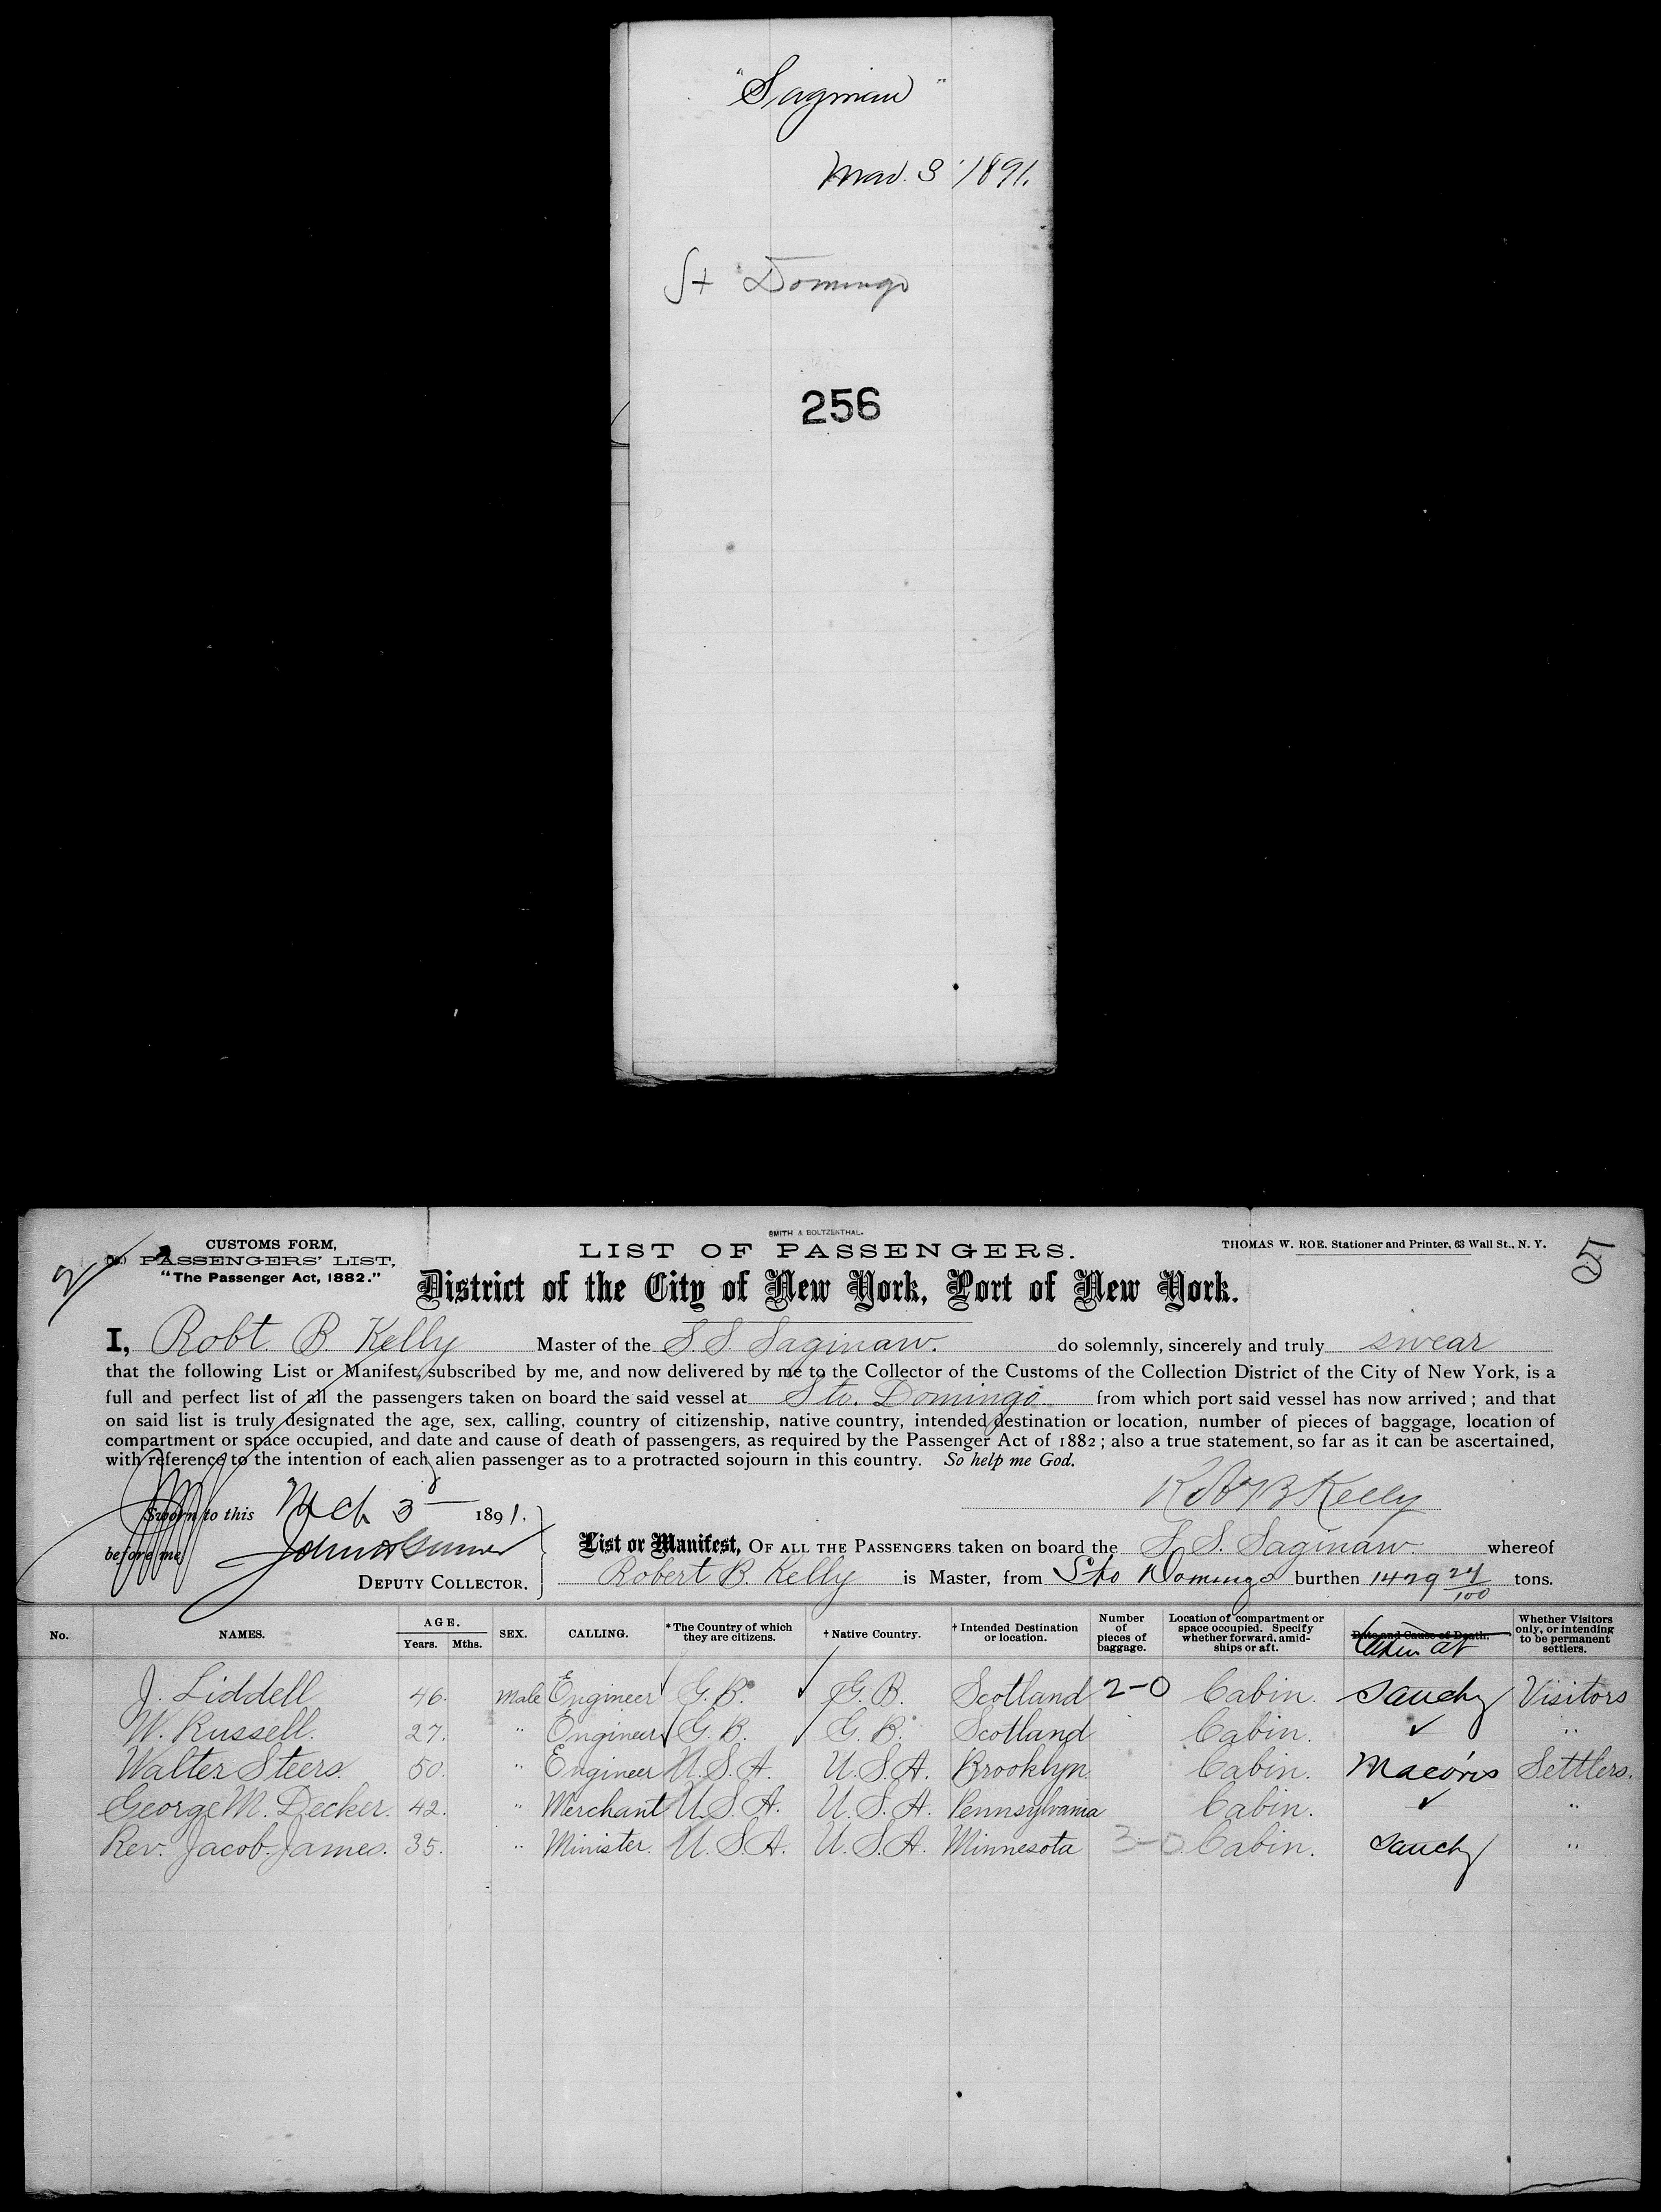 "Saginaw"
Mar. 3 1891.
St Domingo
256
CUSTOMS FORM,
PASSENGERS' LIST,
"The Passenger Act, 1882."
SMITH & BOLTZENTHAL.
LIST OF PASSENGERS.
THOMAS W. ROE, Stationer and Printer, 63 Wall St., N. Y.
5
District of the City of New York, Port of New York.
I, Robt. B. Kelly Master of the S.S. Saginaw. do solemnly, sincerely and truly swear
that the following List or Manifest, subscribed by me, and now delivered by me to the Collector of the Customs of the Collection District of the City of New York, is a
full and perfect list of all the passengers taken on board the said vessel at Sto. Domingo from which port said vessel has now arrived; and that
on said list is truly designated the age, sex, calling, country of citizenship, native country, intended destination or location, number of pieces of baggage, location of
compartment or space occupied, and date and cause of death of passengers, as required by the Passenger Act of 1882; also a true statement, so far as it can be ascertained,
with reference to the intention of each alien passenger as to a protracted sojourn in this country. So help me God.
Robt B Kelly
Sworn to this Mch 3 1891.
before me
DEPUTY COLLECTOR.
List or Manifest, OF ALL THE PASSENGERS taken on board the S. S. Saginaw. whereof
Robert B. Kelly is Master, from Sto Domingo burthen 1429 24/100 tons.
No. NAMES. AGE. Years. Mths. SEX. CALLING. *The Country of which they are citizens. †Native Country. †Intended Destination or location. Number of pieces of baggage. Location of compartment or space occupied. Specify whether forward, amidships or aft. Date and Cause of Death. Taken at Whether Visitors only, or intending to be permanent settlers.
J. Liddell 46. Male Engineer G.B. G.B. Scotland 2-0 Cabin. Sanchz Visitors
W. Russell. 27. " Engineer G.B. G.B. Scotland Cabin. ✓ "
Walter Steers. 50. " Engineer U.S.A. U.S.A. Brooklyn. Cabin. Macoris Settlers.
George M. Decker. 42. " Merchant U.S.A. U.S.A. Pennsylvania Cabin. ✓ "
Rev. Jacob James. 35. " Minister. U.S.A. U.S.A. Minnesota 3-0 Cabin. Sanchz "